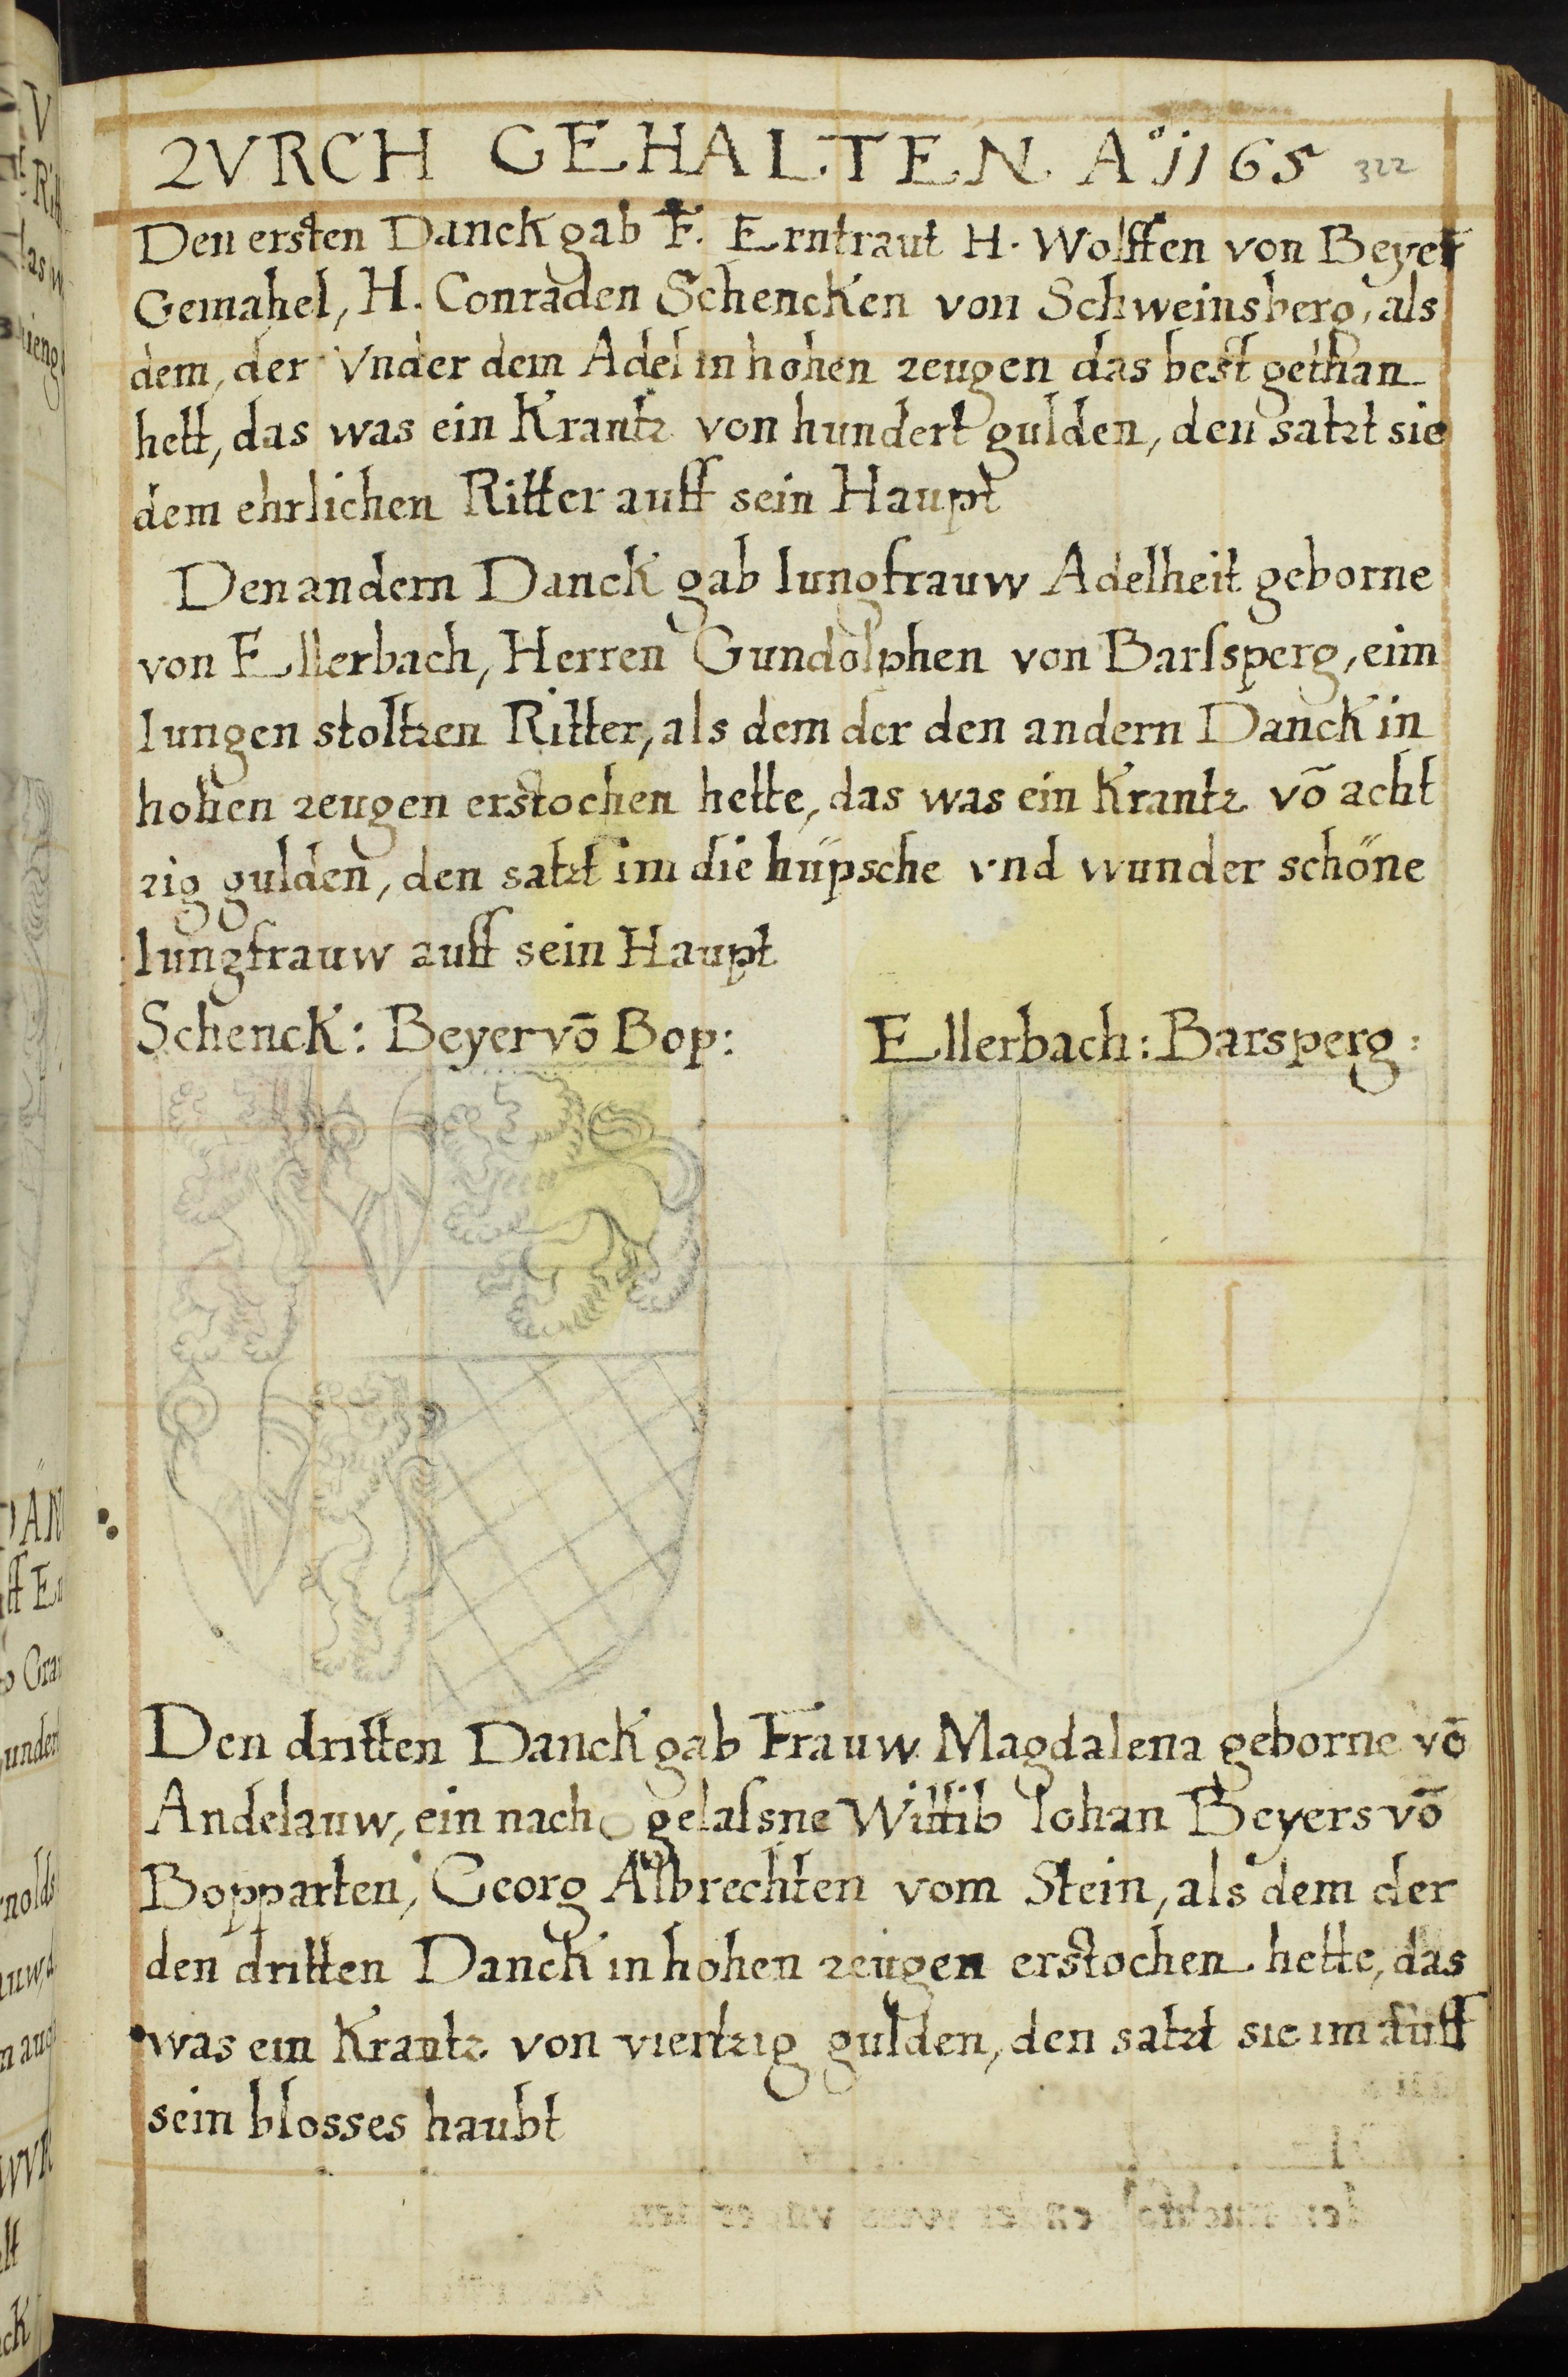 ZVRCH GEHALTEN. A° 1165 322
Den ersten Danck gab F. Erntraut H. Wolffen von Beyer
Gemahel, H. Conraden Schencken von Schweinsberg, als
dem, der Vnder dem Adel in hohen zeugen das best gethan
hett, das was ein Krantz von hundert gulden, den satzt sie
dem ehrlichen Ritter auff sein Haupt
Den andern Danck gab Iungfrauw Adelheit geborne
von Ellerbach, Herren Gundolphen von Barſsperg, eim
Iungen stoltzen Ritter, als dem der den andern Danck in
hohen zeugen erstochen hette, das was ein Krantz võ acht
zig gulden, den satzt im die hüpsche vnd wunder schöne
Iungfrauw auff sein Haupt
Schenck: Beyer võ Bop: Ellerbach: Barsperg:
Den dritten Danck gab Frauw Magdalena geborne võ
Andelauw, ein nach gelaſsne Wittib Iohan Beyers võ
Bopparten, Georg Albrechten vom Stein, als dem der
den dritten Danck in hohen zeugen erstochen hette, das
was ein Krantz von viertzig gulden, den satzt sie im auff
sein blosses haubt